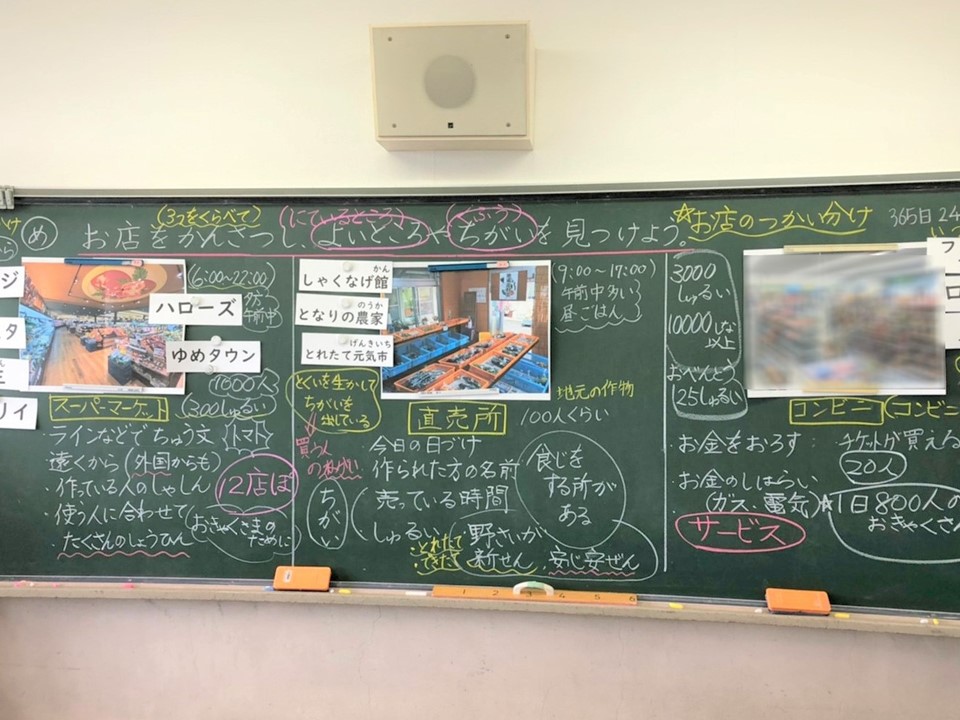 (3つをくらべて)
(にているところ)
(くふう)
め
お店をかんさつし、よいところやちがいを見つけよう。
☆お店のつかい分け
365日24
ハローズ
ゆめタウン
(6:00〜22:00)
午前中
1000人
300しゅるい
スーパーマーケット
・ラインなどでちゅう文
トマト
遠くから(外国からも)
・作っている人のしゃしん
12店ぽ
・使う人に合わせて
たくさんのしょうひん
おきゃくさまのために
かん
しゃくなげ館
のうか
となりの農家
げんきいち
とれたて元気市
(9:00〜17:00)
午前中多い
昼ごはん
とくいを生かして
ちがいを
出している
買う人
のねがい
地元の作物
直売所
100人くらい
ちがい
・今日の日づけ
・作られた方の名前
・売っている時間
・しゅるい
食じを
する所が
ある
・とれたて
・できたて
野さいが
新せん
安心安ぜん
3000
しゅるい
10000しな
以上
おべんとう
25しゅるい
コンビニ
(コンビニ
・お金をおろす
チケットが買える
20人
・お金のしはらい
(ガス、電気)
☆1日800人の
おきゃくさん
サービス